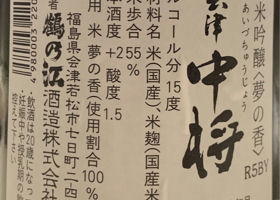 米吟醸〈夢の香〉
あいづちゅうじょう
会津
中将
R5BY
アルコール分 15度
原材料名 米(国産)米麹(国産米
精米歩合 55%
日本酒度+ 酸度 1.5
米 夢の香(使用割合100%
福島県会津若松市七日町二-四
鶴乃江酒造株式会社
4980003220
・飲酒は20歳になっ
妊娠中や授乳期の飲
控えて下さい